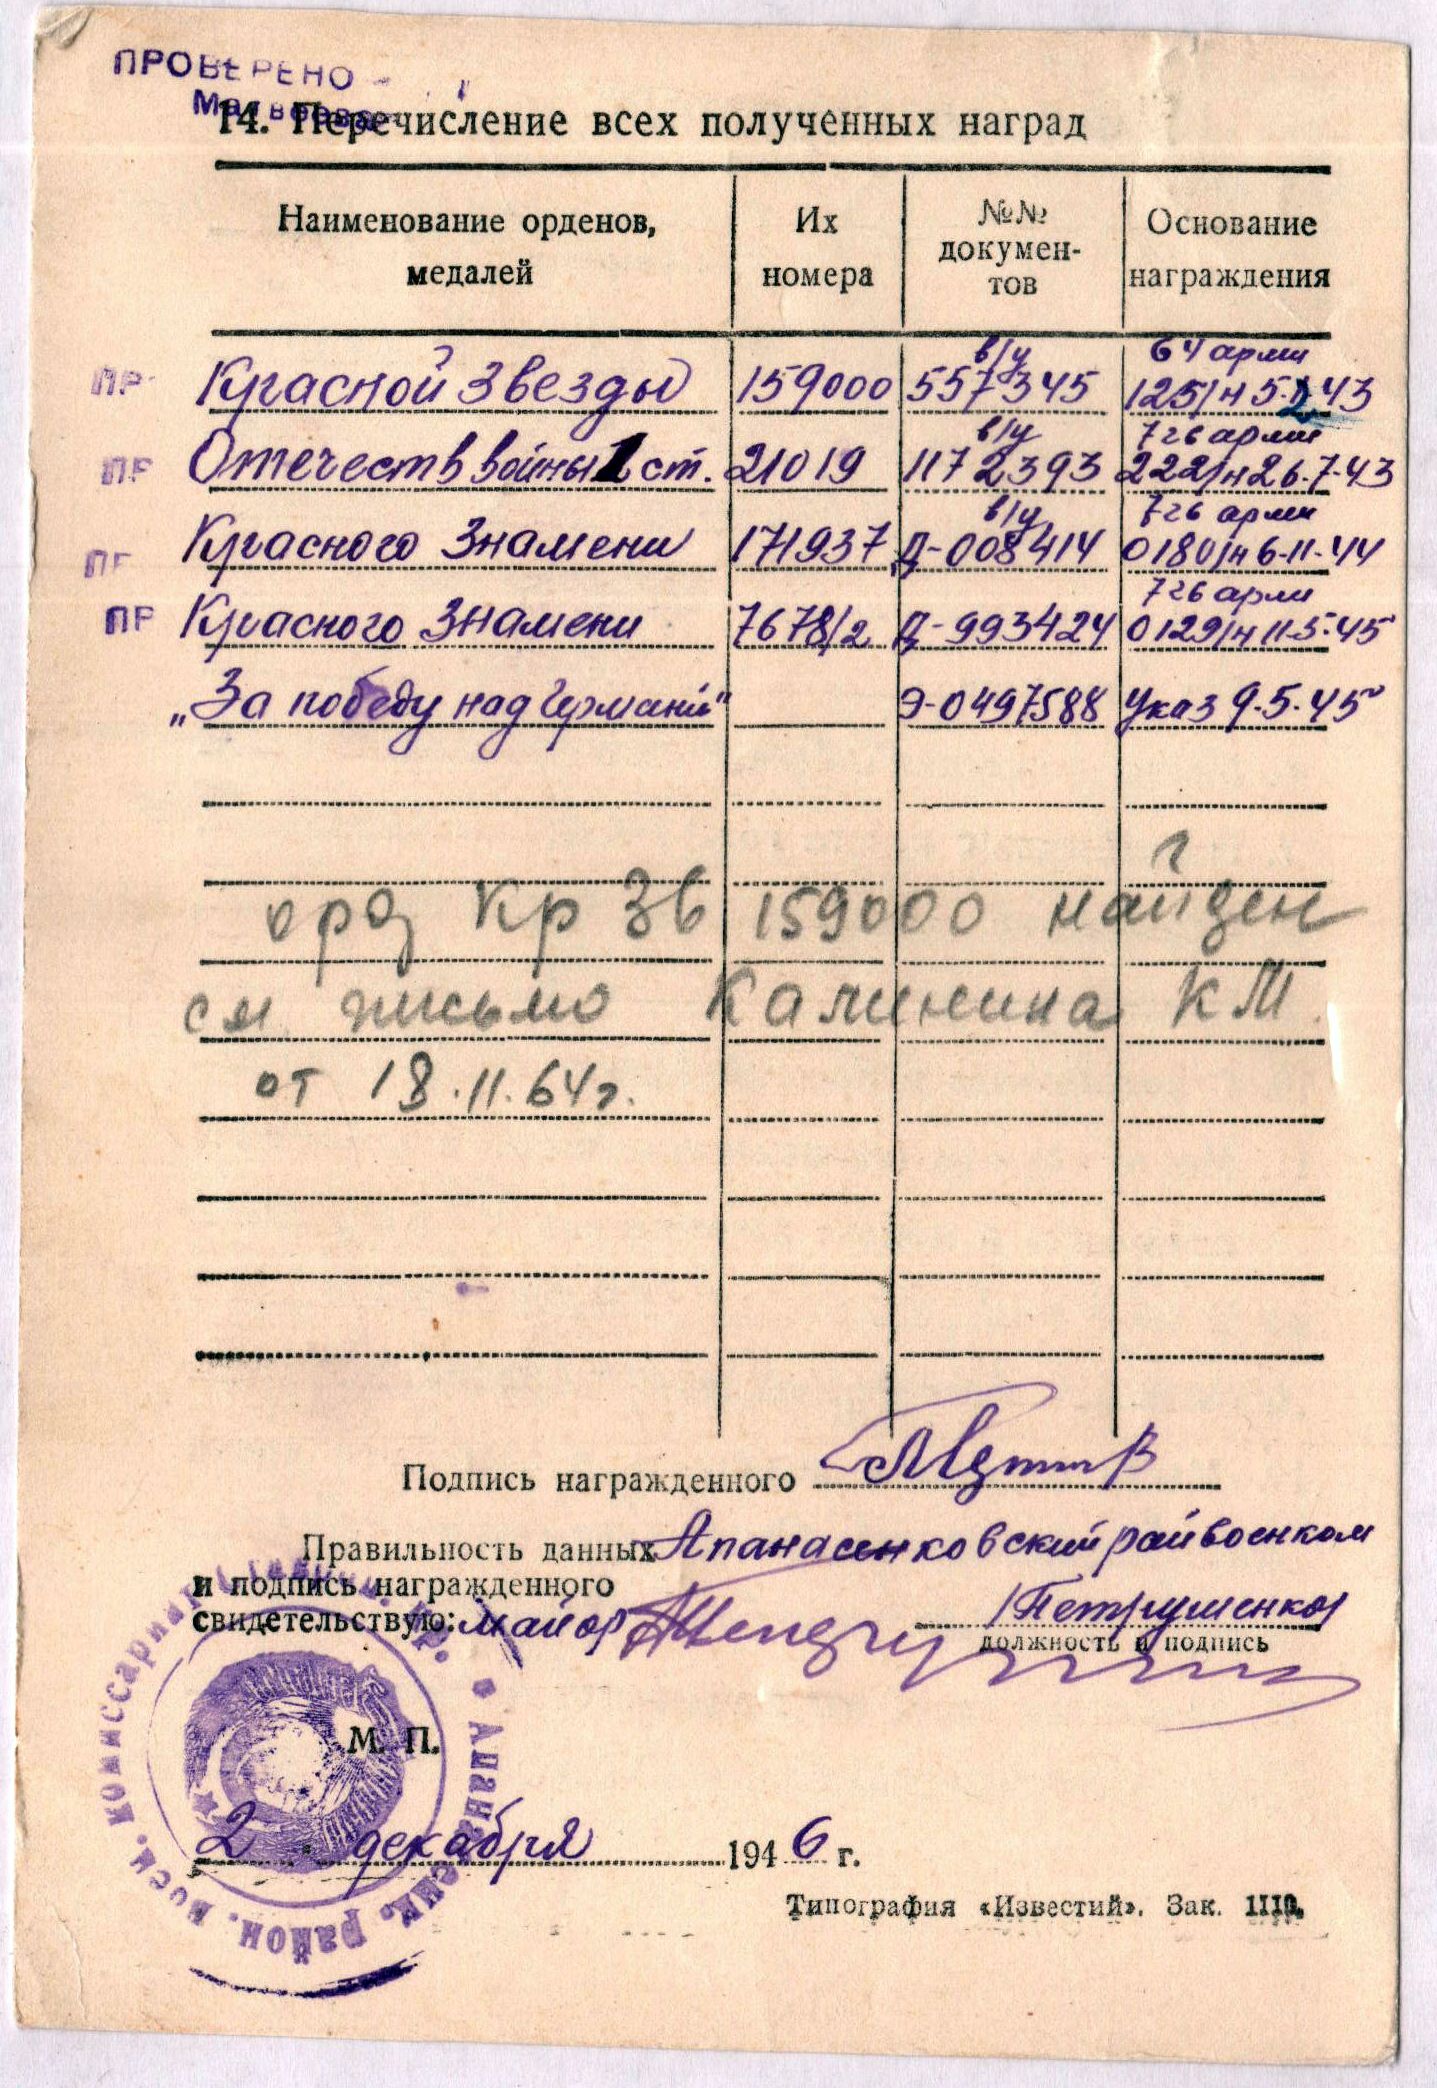 ПРОВЕРЕНО
Матвеева
14. Перечисление всех полученных наград
Наименование орденов, медалей
Их номера
№№ докумен-тов
Основание награждения
в/у 64 арми
ПР Красной Звезды 159000 557345 125/н 5.2.43
в/у 7 гв арми
ПР Отечеств войны 1 ст. 21019 1172393 222/н 26.7.43
в/у 7 гв арми
ПР Красного Знамени 171937 Д-008414 0180/н 6-11-44
7 гв арми
ПР Красного Знамени 7678/2 Д-993424 0129/н 11-5-45
„За победу над Германий" Э-0497588 Указ 9.5.45
?
орд Кр Зв 159000 найден
см письмо Калинина КМ.
от 18.11.64г.
Подпись награжденного
Правильность данных Апанасенковский райвоенком
и подпись награжденного
свидетельствую: майор /Петрушенко/
должность и подпись
М. П.
2 декабря 1946 г.
Типография «Известий». Зак. 1110.